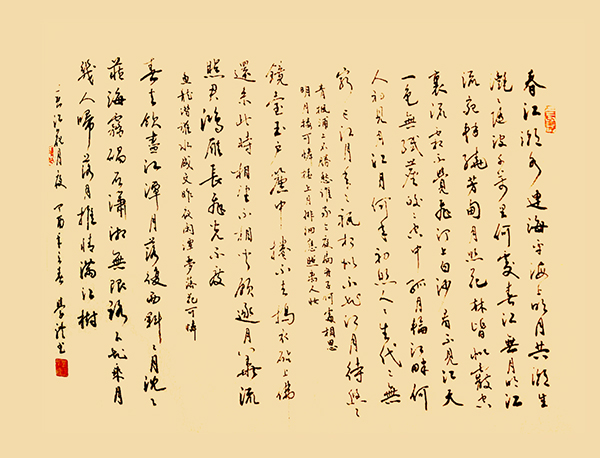 春江潮水連海平海上明月共潮生
灩灩隨波千万里何處春江無月明江
流宛轉繞芳甸月照花林皆似霰空
裏流霜不覺飛汀上白沙看不見江天
一色無纖塵皎皎空中孤月輪江畔何
人初見月江月何年初照人人生代代無
窮已江月年年祇相似不知江月待
青楓浦上不勝愁誰家今夜扁舟子何處相思
明月樓可憐樓上月徘徊應照离人妝
鏡臺玉戶簾中捲不去搗衣砧上拂
還來此時相望不相聞願逐月華流
照君鴻雁長飛光不度
魚龍潛躍水成文昨夜閑潭夢落花可憐
春去欲盡江潭月落復西斜斜月沉沉
藏海霧碣石瀟湘無限路不知乘月
幾人歸落月搖情滿江樹
春江花月夜 丁酉年之春 書